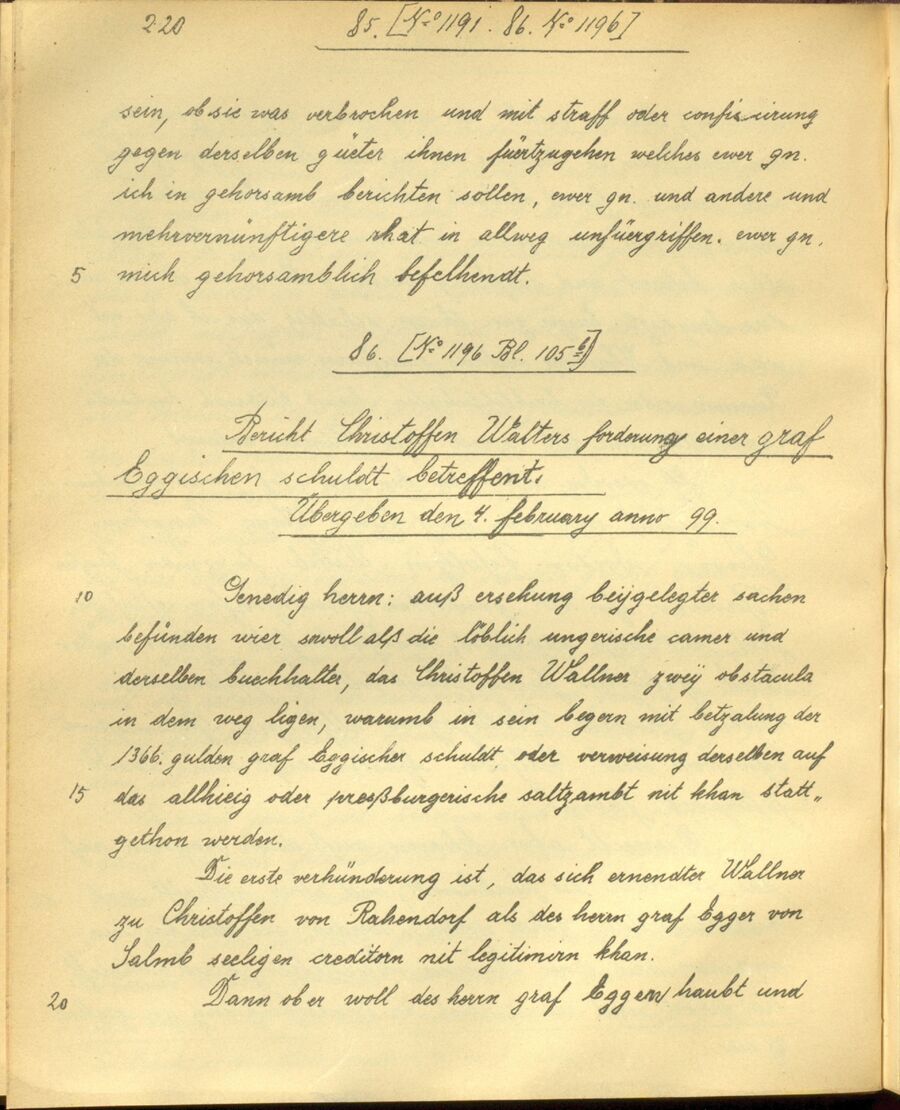 220
85. [No 1191. 86. No 1196]
sein, ob sie was verbrochen und mit straff oder confiscirung
gegen derselben güeter ihnen füertzugehen welches ewer gn.
ich in gehorsamb berichten sollen, ewer gn. und andere und
mehrvernünftigere rhat in allweg unfüergriffen. ewer gn.
5 mich gehorsamblich befelhendt.
86. [No 1196 Bl. 105 b]
Bericht Christoffen Walters forderung einer graf
Eggischen schuldt betreffent.
Übergeben den 4. february anno 99.
10 Genedig herrn: auß ersehung beÿgelegter sachen
befünden wier sowoll alß die löblich ungerische camer und
derselben buechhalter, das Christoffen Wallner zweÿ obstacula
in dem weg ligen, warumb in sein begern mit betzalung der
1366. gulden graf Eggischer schuldt, oder verweisung derselben auf
15 das allhieig oder preßburgerische saltzambt nit khan statt„
gethon werden.
Die erste verhünderung ist, das sich ernendter Wallner
zu Christoffen von Rahendorf als des herrn graf Egger von
Salmb seeligen creditorn nit legitimirn khan.
20 Dann ob er woll des herrn graf Eggen haubt und